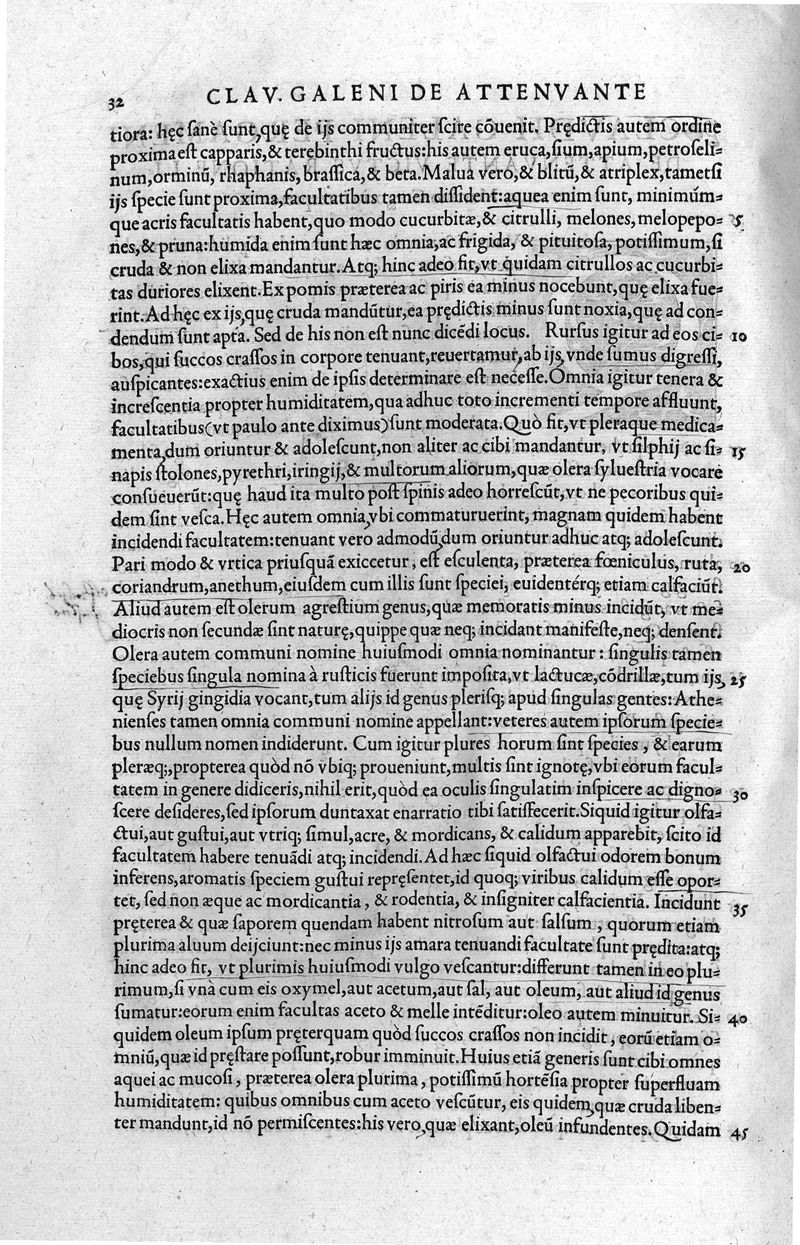 32 CLAV. GALENI DE ATTENVANTE
tiora: hęc ſanè ſunt,quę de ijs communiter ſcire cõuenit. Prędictis autem ordine
proxima eſt capparis,& terebinthi fructus:his autem eruca,ſium,apium,petroſeli-
num,orminũ, rhaphanis, braſſica,& beta. Malua vero,& blitũ,& atriplex,tametſi
ijs ſpecie ſunt proxima,facultatibus tamen diſſident:aquea enim ſunt, minimúm-
que acris facultatis habent,quo modo cucurbitæ,& citrulli, melones,melopepo- 5
nes,& pruna:humida enim ſunt hæc omnia,ac frigida, & pituitoſa, potiſſimum,ſi
cruda & non elixa mandantur. Atq; hinc adeo fit,vt quidam citrullos ac cucurbi-
tas duriores elixent. Ex pomis præterea ac piris ea minus nocebunt,quę elixa fue-
rint. Ad hęc ex ijs,quę cruda mandũtur,ea prędictis minus ſunt noxia,quę ad con-
dendum ſunt apta. Sed de his non eſt nunc dicẽdi locus. Rurſus igitur ad eos ci- 10
bos,qui ſuccos craſſos in corpore tenuant,reuertamur,ab ijs,vnde ſumus digreſſi,
auſpicantes:exactius enim de ipſis determinare eſt neceſſe. Omnia igitur tenera &
increſcentia propter humiditatem,qua adhuc toto incrementi tempore affluunt,
facultatibus(vt paulo ante diximus)ſunt moderata. Quò fit,vt pleraque medica-
menta,dum oriuntur & adoleſcunt,non aliter ac cibi mandantur, vt ſilphij ac ſi- 15
napis ſtolones,pyrethri,iringij,& multorum aliorum,quæ olera ſylueſtria vocare
conſueuerũt:quę haud ita multo poſt ſpinis adeo horreſcũt,vt ne pecoribus qui-
dem ſint veſca. Hęc autem omnia,vbi commaturuerint, magnam quidem habent
incidendi facultatem:tenuant vero admodũ,dum oriuntur adhuc atq; adoleſcunt.
Pari modo & vrtica priuſquã exiccetur, eſt eſculenta, præterea fœniculus, ruta, 20
coriandrum,anethum,eiuſdem cum illis ſunt ſpeciei, euidentérq; etiam calfaciũt.
Aliud autem eſt olerum agreſtium genus,quæ memoratis minus incidũt, vt me-
diocris non ſecundæ ſint naturę,quippe quæ neq; incidant manifeſte,neq; denſent.
Olera autem communi nomine huiuſmodi omnia nominantur: ſingulis tamen
ſpeciebus ſingula nomina à ruſticis fuerunt impoſita,vt lactucæ,cõdrillæ,tum ijs, 25
quę Syrij gingidia vocant,tum alijs id genus pleriſq; apud ſingulas gentes:Athe-
nienſes tamen omnia communi nomine appellant:veteres autem ipſorum ſpecie-
bus nullum nomen indiderunt. Cum igitur plures horum ſint ſpecies, & earum
pleræq;,propterea quòd nõ vbiq; proueniunt,multis ſint ignotę,vbi eorum facul-
tatem in genere didiceris,nihil erit,quòd ea oculis ſingulatim inſpicere ac digno- 30
ſcere deſideres,ſed ipſorum duntaxat enarratio tibi ſatiſfecerit. Siquid igitur olfa-
ctui,aut guſtui,aut vtriq; ſimul,acre, & mordicans, & calidum apparebit, ſcito id
facultatem habere tenuãdi atq; incidendi. Ad hæc ſiquid olfactui odorem bonum
inferens,aromatis ſpeciem guſtui repręſentet,id quoq; viribus calidum eſſe opor-
tet, ſed non æque ac mordicantia, & rodentia, & inſigniter calfacientia. Incidunt 35
pręterea & quæ ſaporem quendam habent nitroſum aut ſalſum, quorum etiam
plurima aluum deijciunt:nec minus ijs amara tenuandi facultate ſunt prędita:atq;
hinc adeo fit, vt plurimis huiuſmodi vulgo veſcantur:differunt tamen in eo plu-
rimum,ſi vnà cum eis oxymel,aut acetum,aut ſal, aut oleum, aut aliud id genus
ſumatur:eorum enim facultas aceto & melle intẽditur:oleo autem minuitur. Si- 40
quidem oleum ipſum pręterquam quòd ſuccos craſſos non incidit, eorũ etiam o-
mniũ,quæ id pręſtare poſſunt,robur imminuit. Huius etiã generis ſunt cibi omnes
aquei ac mucoſi, præterea olera plurima, potiſſimũ hortẽſia propter ſuperfluam
humiditatem: quibus omnibus cum aceto veſcũtur, eis quidem,quæ cruda liben-
ter mandunt,id nõ permiſcentes:his vero,quæ elixant,oleũ infundentes. Quidam 45